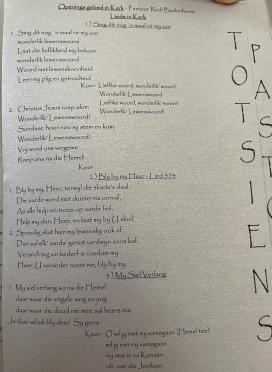 Openingsgebed in Kerk - Pastoor Rudi Badenhorst
Liede in Kerk
1.) Sing dit nog 'n maal vir my oor
1. Sing dit nog 'n maal vir my oor
wonderlik lewenswoord
Laat die lieflikheid my bekoor
wonderlik lewenswoord
Woord met lewenskoonheid
Leer my plig en getrouheid
Koor: Lieflike woord, wonderlik' woord
Wonderlik' Lewenswoord
Lieflike woord, wonderlik' woord
Wonderlik' Lewenswoord
2. Christus Jesus roep alom
Wonderlik' Lewenswoord!
Sondaar, hoor nou sy stem en kom,
Wonderlik' Lewenswoord!
Vry word ons vergewe
Roep ons na die Hemel
Koor:
2.) Bly by my Heer - Lied
1. Bly by my, Heer, terwyl die skadu's daal
Die aarde word met duisternis oorval,
As alle hulp en troos op aarde feil,
Help my dan, Heer, en laat my by U skuil.
2. Spoedig sluit hier my lewensdag ook af,
Dan sal elk' aardse genot verdwyn soos kaf.
Verandring en bederf is rondom my
Heer, U verander nooit nie, bly by my.
3.) My Siel Verlang
1. My siel verlang so na die Hemel
daar waar die engele sing en jug
daar waar die dood nie mee sal heers nie,
Ja daar wil ek bly deur Sy gena
Koor: O wil jy met my saamgaan (Hemel toe)
wil jy met my saamgaan
my reis is na Kanaän
vêr oor die Jordaan
TOTSIENS
PASTO